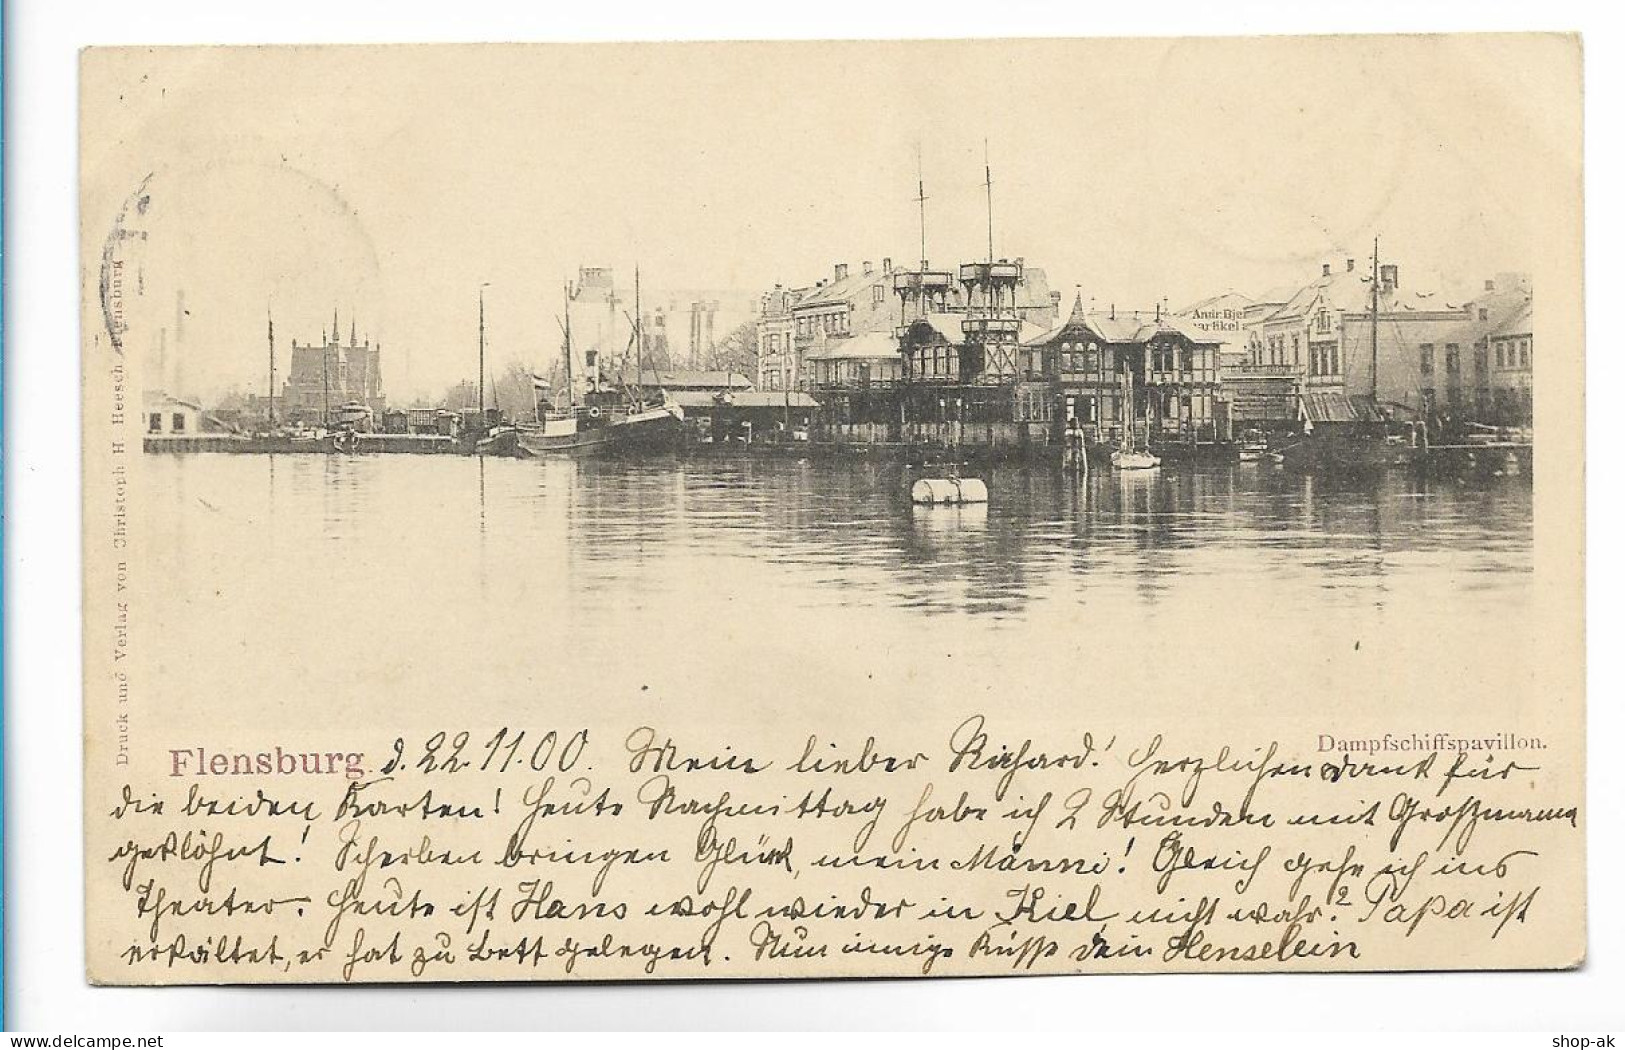 Druck und Verlag von Christoph H. Heesch, Flensburg
Andr. Bje
artikel
Dampfschiffspavillon.
Flensburg d. 22.11.00. Mein lieber Richard! Herzlichen Dank für
die beiden Karten! Heute Nachmittag habe ich 2 Stunden mit Großmama
geklöhnt! Scherben bringen Glück, mein Männi! Gleich gehe ich ins
Theater. Heute ist Hans wohl wieder in Kiel, nicht wahr? Papa ist
erkältet, er hat zu Bett gelegen. Nun innige Küsse Dein Henselein
hippostcard.com
shop-ak